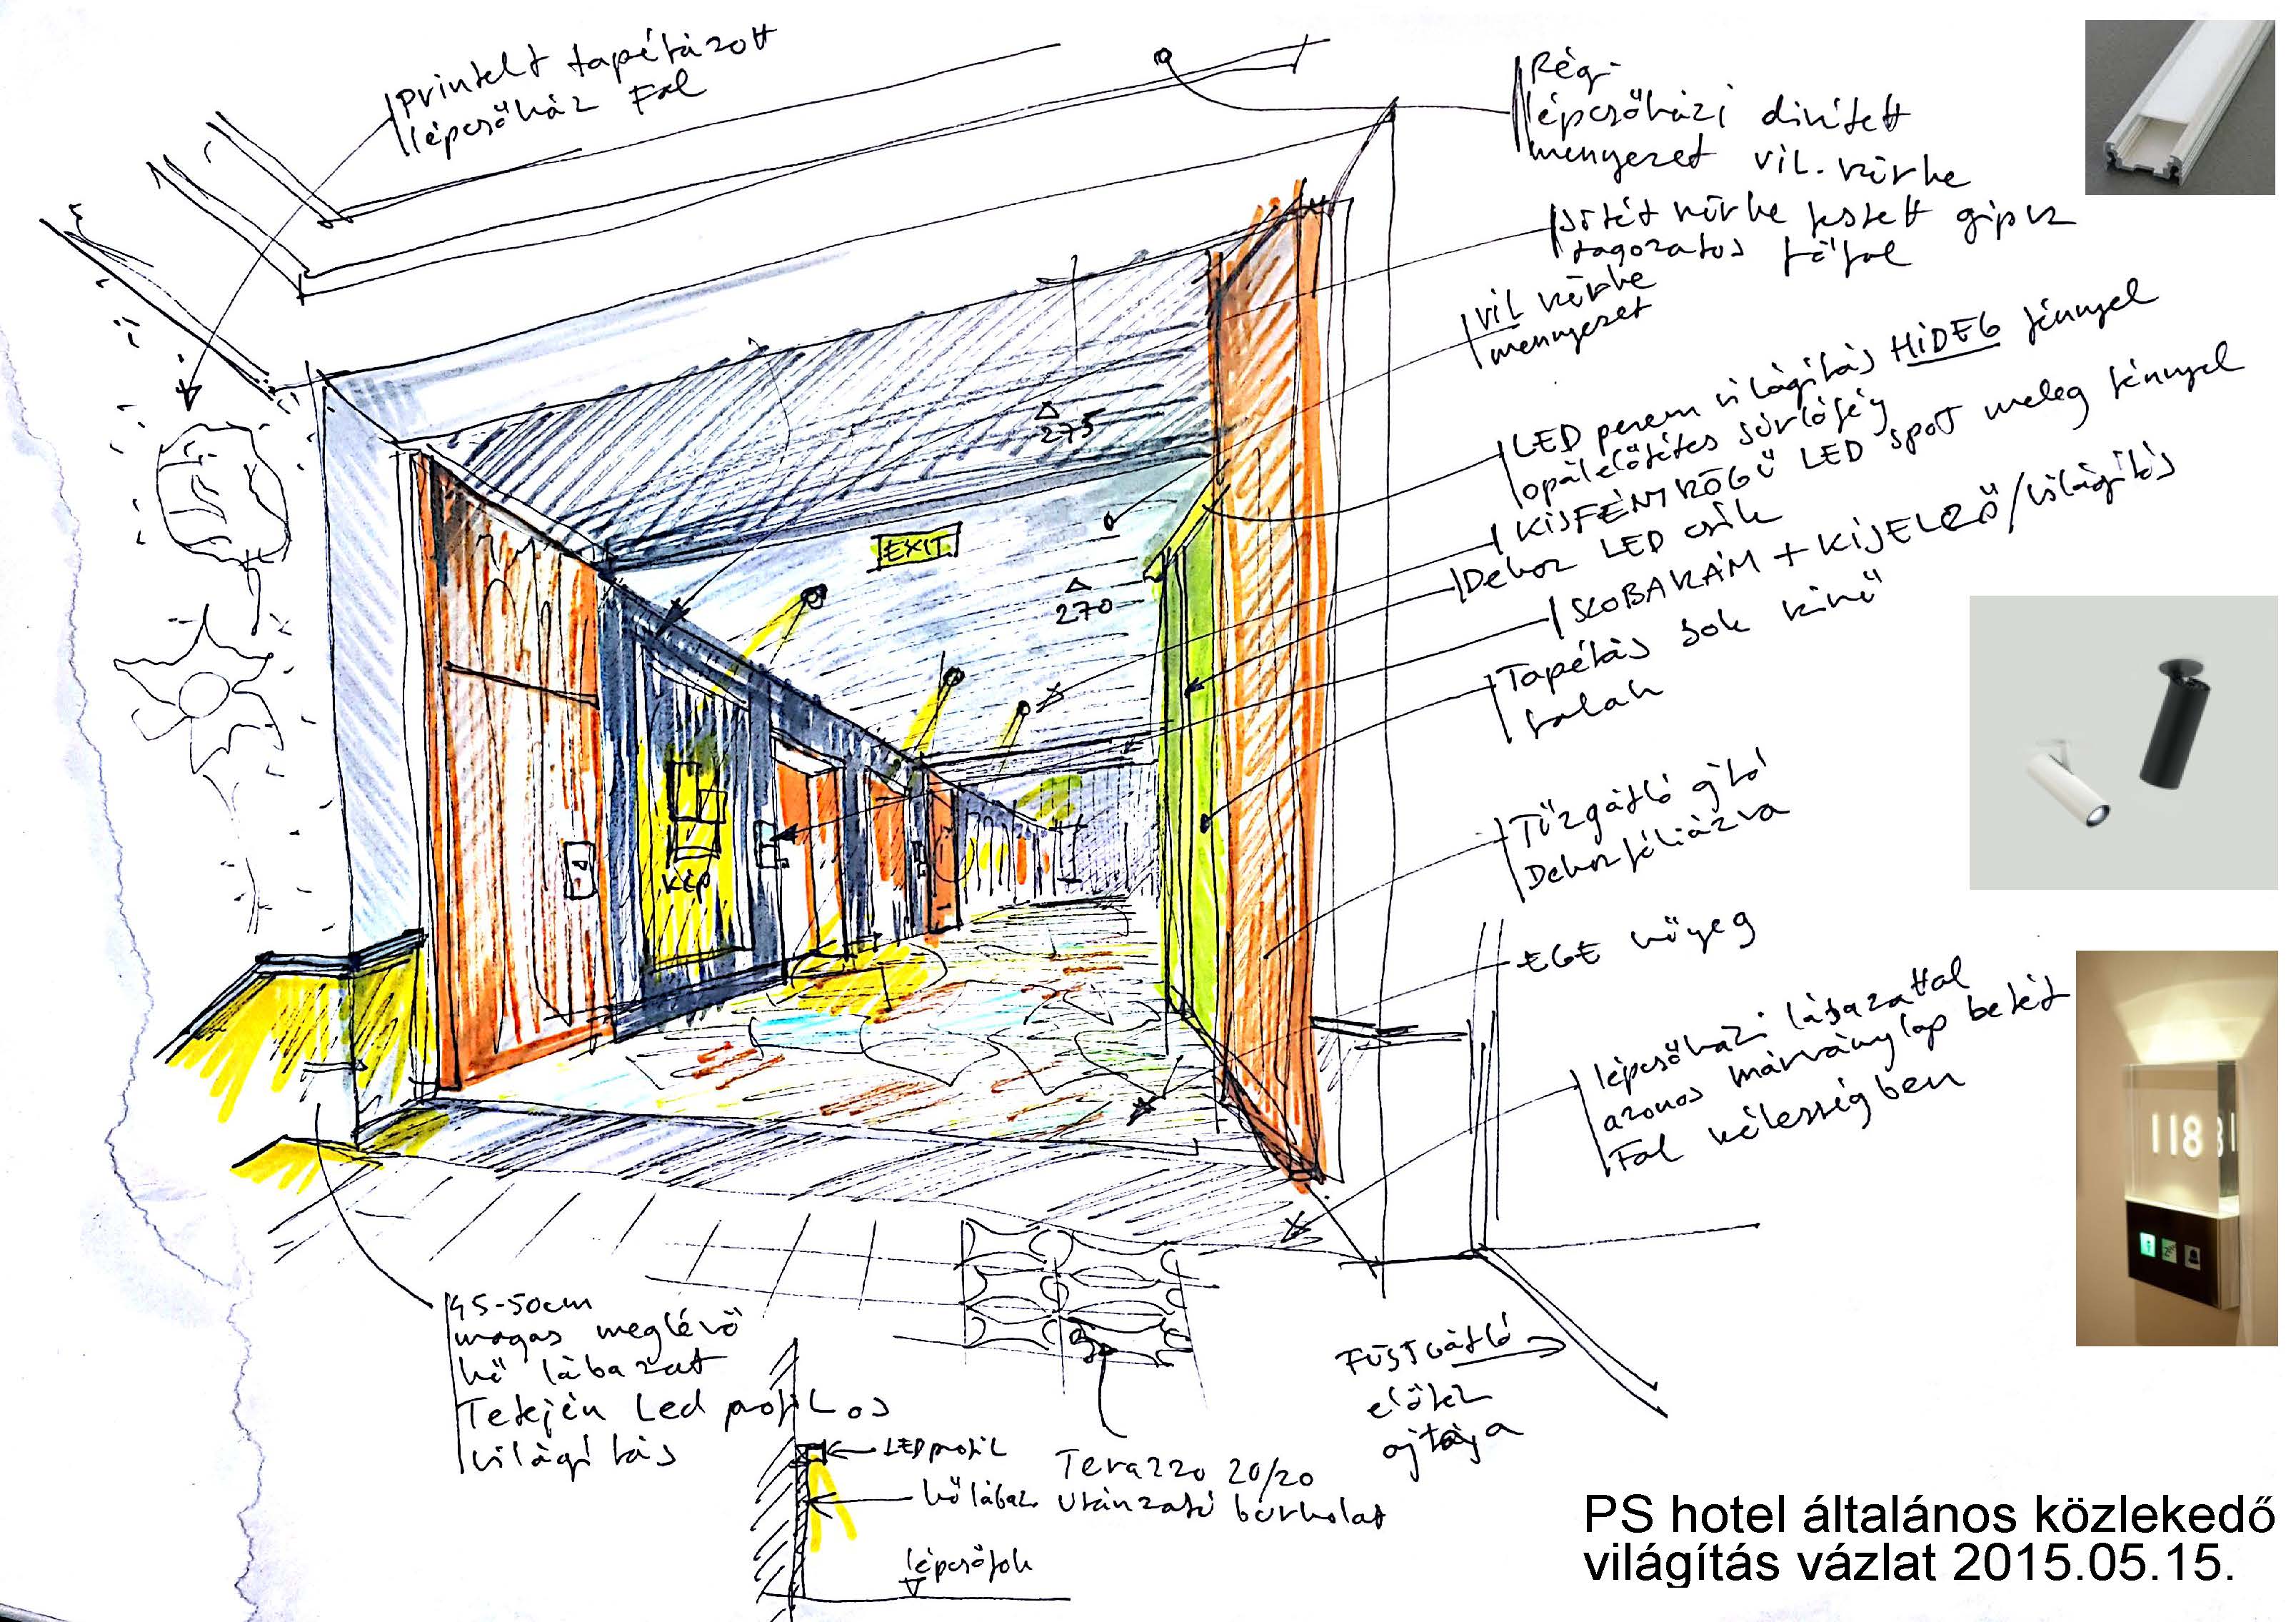 printelt tapétázott
lépcsőház Fal
Régi
lépcsőházi díszített
mennyezet vil. szürke
sötét szürke festett gipsz
tagozatos főfal
vil szürke
mennyezet
LED perem világítás HIDEG fénnyel
opálelőtétes súrlófény
KISFÉNYSZÖGŰ LED spot meleg fénnyel
Dekor LED csík
SZOBASZÁM + KIJELZŐ/világítás
Tapétás sok színű
falak
Tűzgátló ajtó
Dekorfóliázva
EGE szőnyeg
lépcsőházi lábazattal
azonos márványlap betét
Fal szélességben
275
EXIT
270
KÉP
45-50cm
magas meglévő
kő lábazat
Tetején Led profilos
világítás
LED profil
kőlábaz.
lépcsőfok
Terazzo 20/20
utánzatú burkolat
FÜSTGÁTLÓ
előtér
ajtaja
118
PS hotel általános közlekedő
világítás vázlat 2015.05.15.